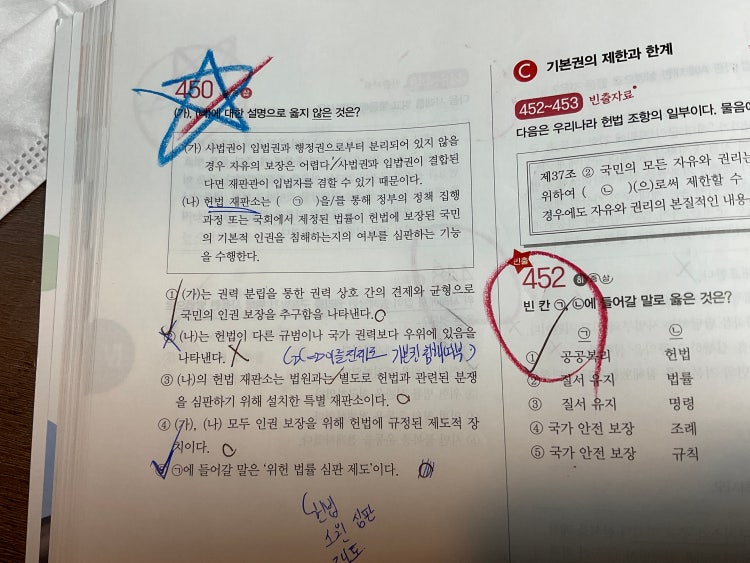 450 상
(가), (나)에 대한 설명으로 옳지 않은 것은?
(가) 사법권이 입법권과 행정권으로부터 분리되어 있지 않을
경우 자유의 보장은 어렵다. 사법권과 입법권이 결합된
다면 재판관이 입법자를 겸할 수 있기 때문이다.
(나) 헌법 재판소는 ( ㉠ )을/를 통해 정부의 정책 집행
과정 또는 국회에서 제정된 법률이 헌법에 보장된 국민
의 기본적 인권을 침해하는지의 여부를 심판하는 기능
을 수행한다.
① (가)는 권력 분립을 통한 권력 상호 간의 견제와 균형으로
국민의 인권 보장을 추구함을 나타낸다. O
② (나)는 헌법이 다른 규범이나 국가 권력보다 우위에 있음을
나타낸다. X
③ (나)의 헌법 재판소는 법원과는 별도로 헌법과 관련된 분쟁
을 심판하기 위해 설치한 특별 재판소이다. O
④ (가), (나) 모두 인권 보장을 위해 헌법에 규정된 제도적 장
치이다. O
⑤ ㉠에 들어갈 말은 '위헌 법률 심판 제도'이다.
헌법
소원 심판
제도
C 기본권의 제한과 한계
452~453 빈출자료
다음은 우리나라 헌법 조항의 일부이다. 물음에
제37조 ② 국민의 모든 자유와 권리는
위하여 ( ㉠ )(으)로써 제한할 수
경우에도 자유와 권리의 본질적인 내용
빈출
452 하 중 상
빈 칸 ㉠, ㉡에 들어갈 말로 옳은 것은?
㉠ ㉡
① 공공복리 헌법
② 질서 유지 법률
③ 질서 유지 명령
④ 국가 안전 보장 조례
⑤ 국가 안전 보장 규칙